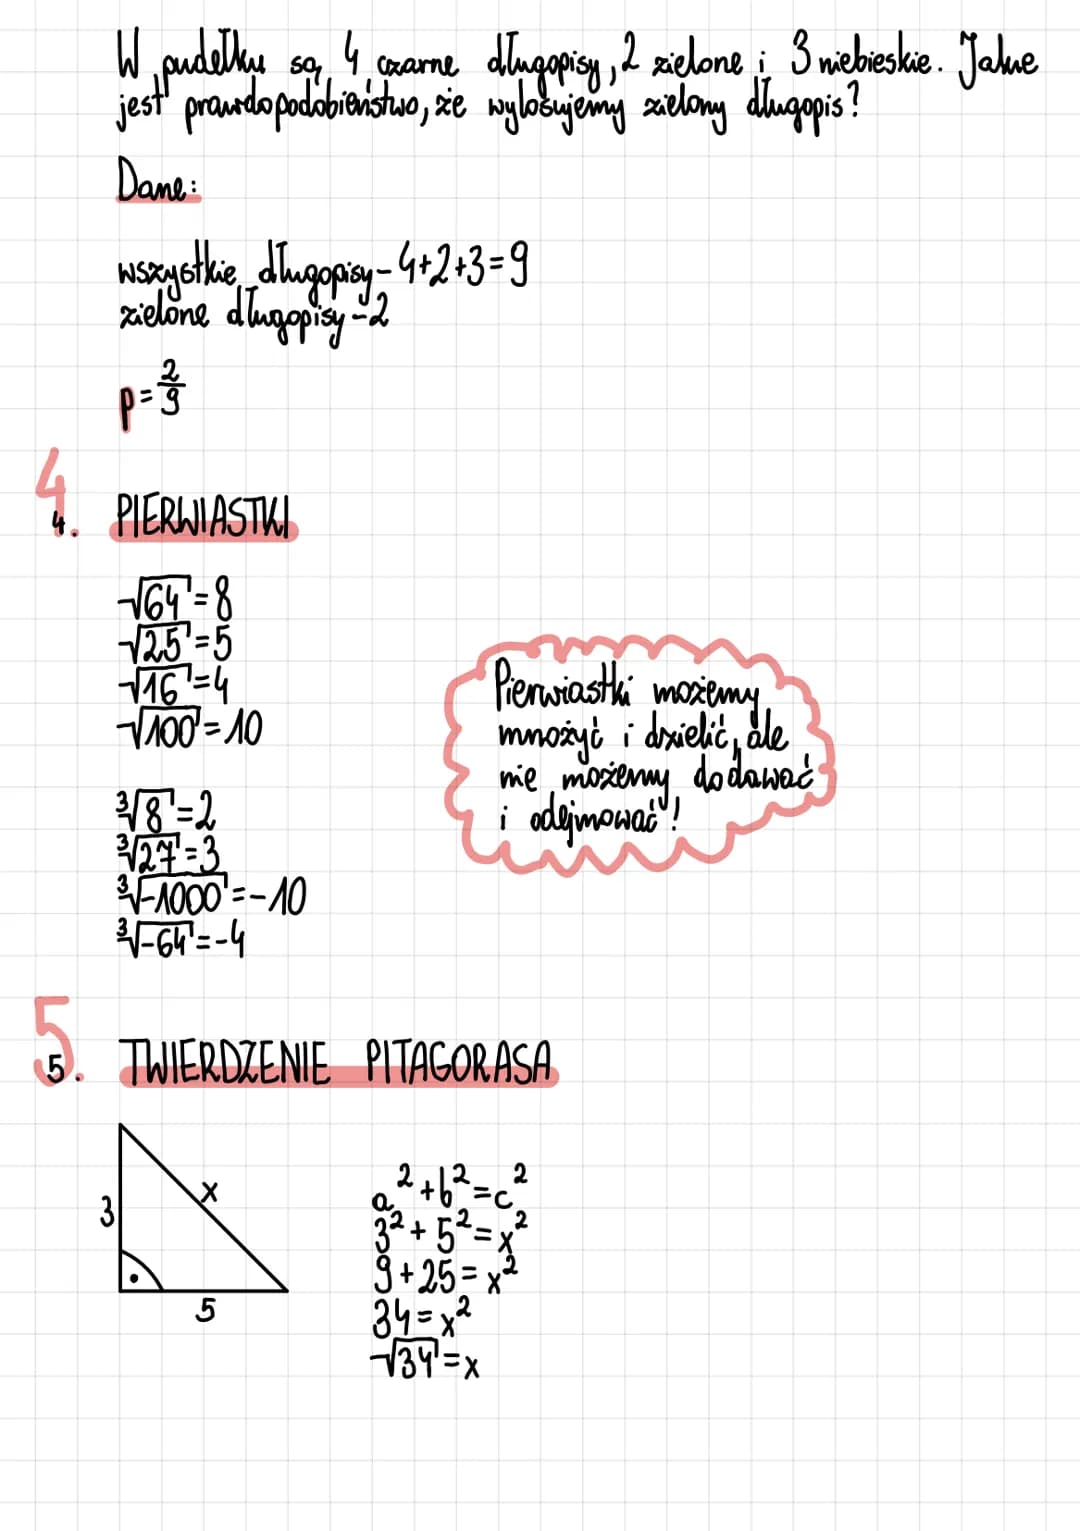 W pudełku są 4 czarne długopisy, 2 zielone i 3 niebieskie. Jakie
jest prawdopodobieństwo, że wylosujemy zielony długopis?
Dane:
wszystkie długopisy - 4+2+3=9
zielone długopisy - 2
p = 2/9
4.
4. PIERWIASTKI
√64 = 8
√25 = 5
√16 = 4
√100 = 10
Pierwiastki możemy
mnożyć i dzielić, ale
nie możemy dodawać
i odejmować!
³√8 = 2
³√27 = 3
³√-1000 = -10
³√-64 = -4
5.
5. TWIERDZENIE PITAGORASA
3
x
5
a² + b² = c²
3² + 5² = x²
9 + 25 = x²
34 = x²
√34 = x